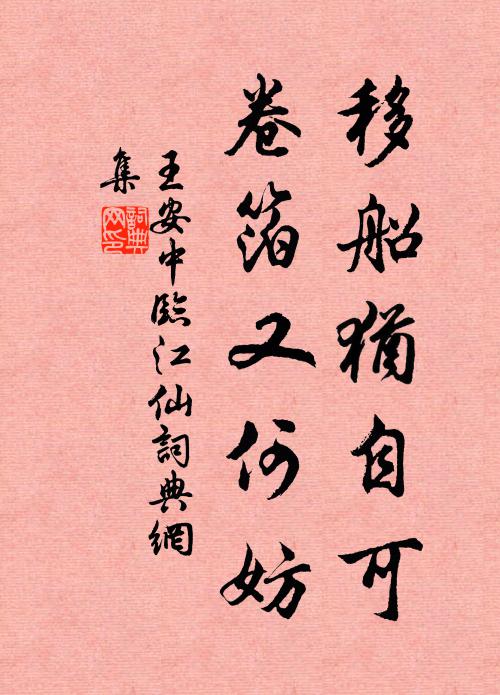 移船猶自可
卷箔又何妨
王安中臨江仙詞典網
集
詞典網印